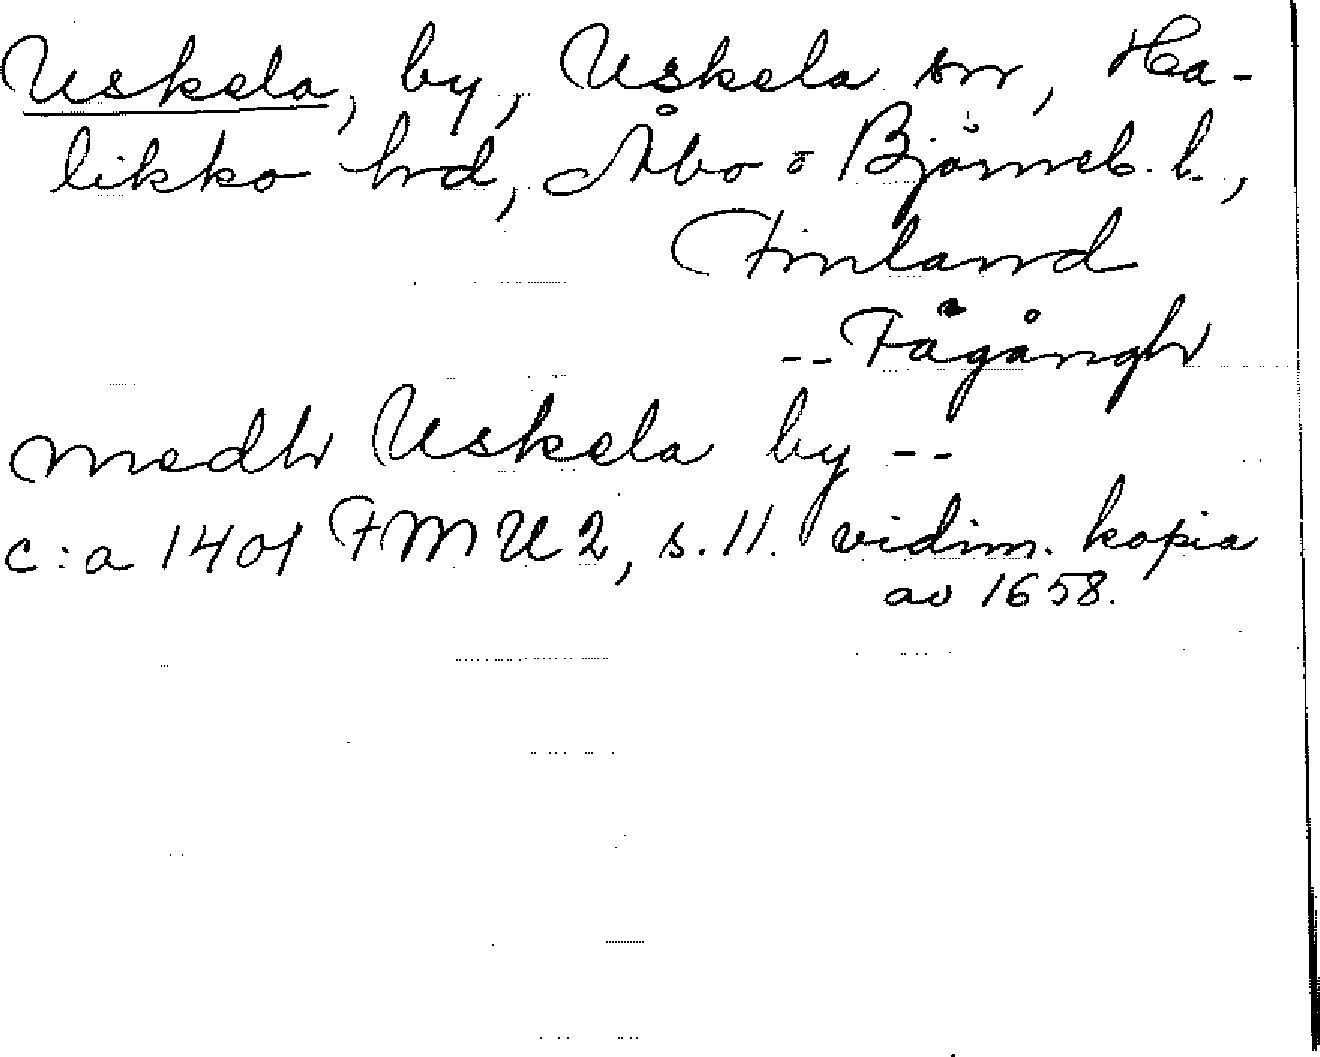 Uskela, by, Uskela sn, Ha-
likko hrd, Åbo o Björneb. l.,
Finland
-- Fågångh
medh Uskela by --
c:a 1401 FMU 2, s. 11. vidim. kopia
av 1658.